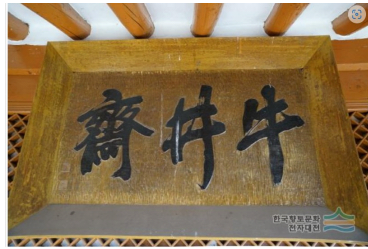 牛井齋
한국향토문화
전자대전